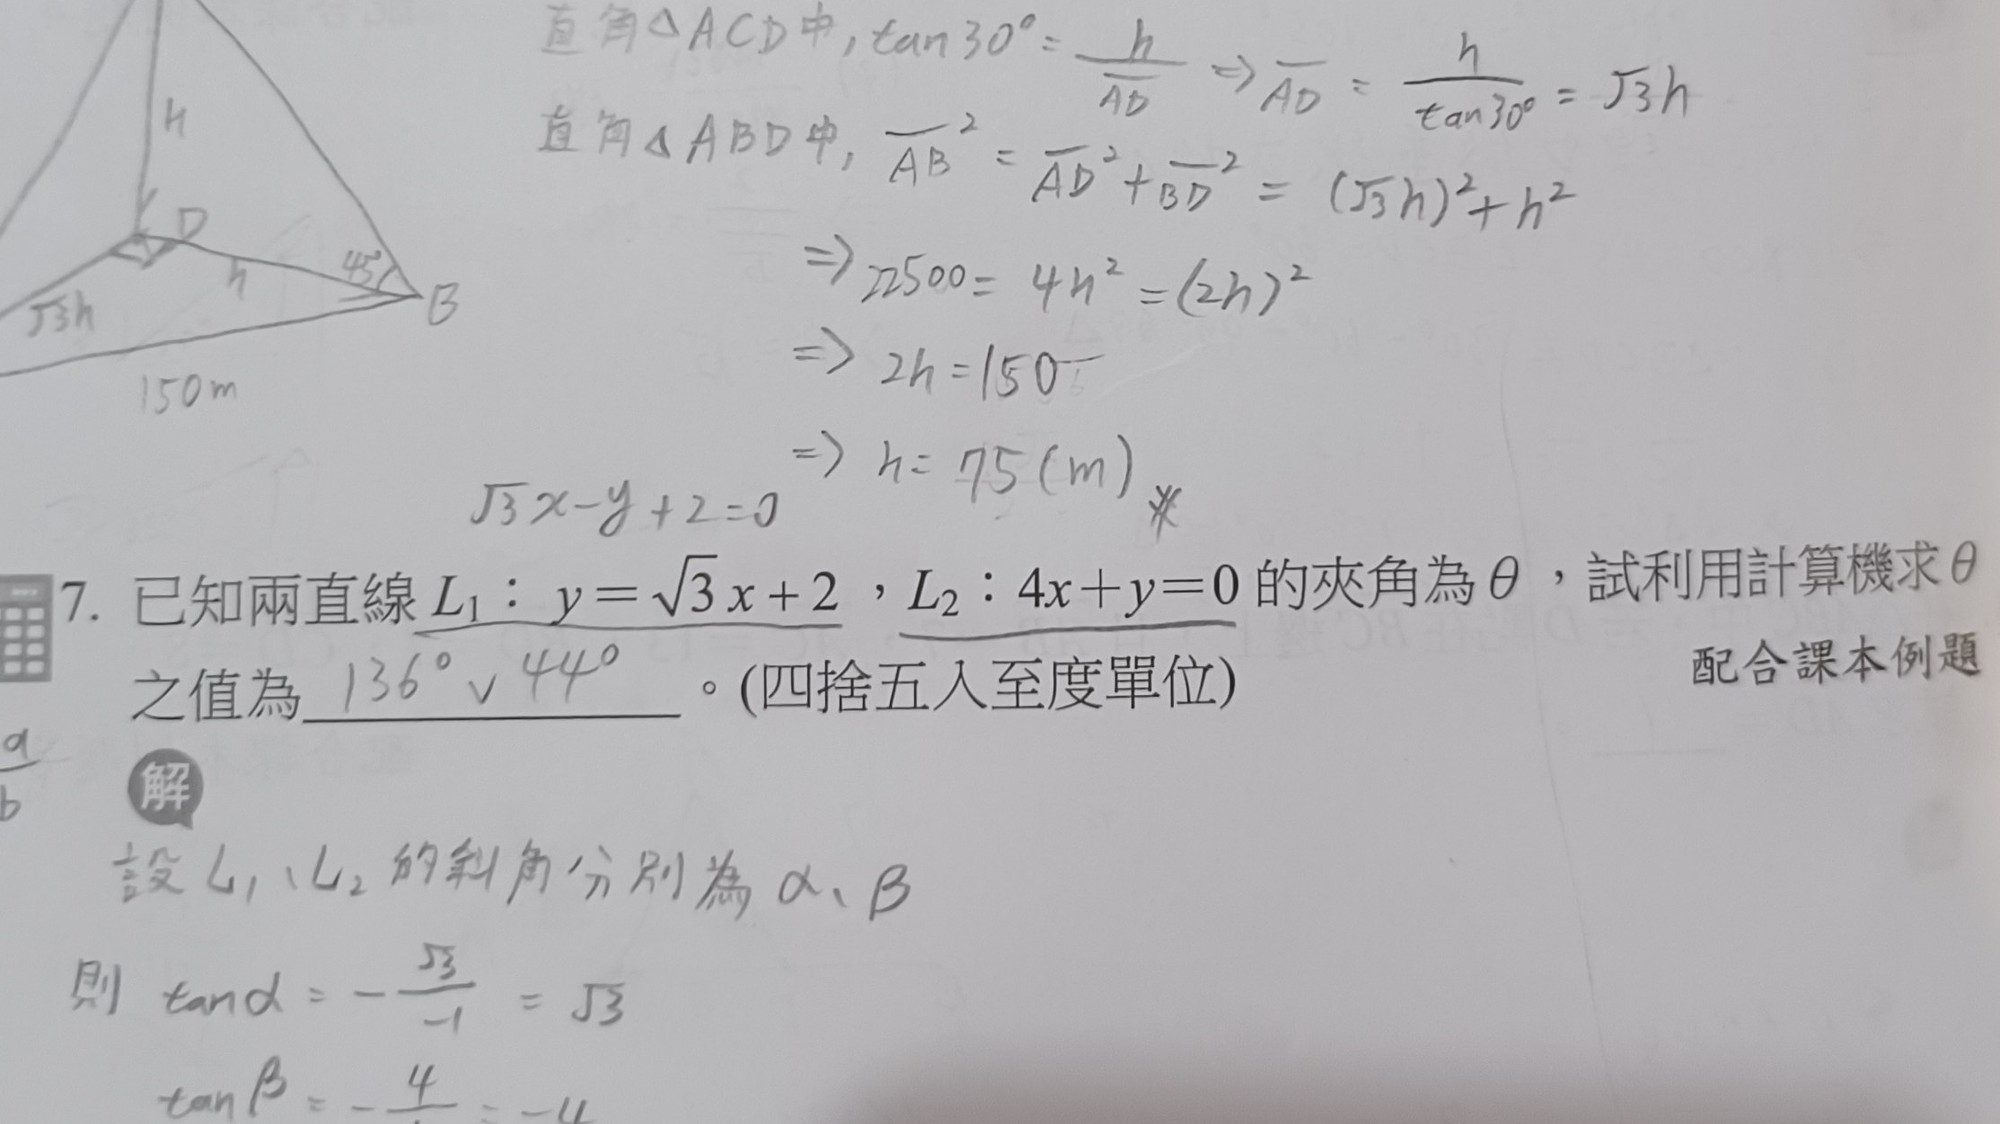 直角△ACD中, tan30° = h/AD̅ ⇒ AD̅ = h/tan30° = √3h
直角△ABD中, AB̅² = AD̅² + BD̅² = (√3h)² + h²
⇒ 22500 = 4h² = (2h)²
⇒ 2h = 150
⇒ h = 75 (m)
h
D
h
45°
B
√3h
150m
√3x-y+2=0
7. 已知兩直線 L₁: y=√3x+2,L₂:4x+y=0 的夾角為θ,試利用計算機求θ
之值為 136°、44° 。(四捨五入至度單位)
配合課本例題
a/b
解
設 L₁、L₂ 的斜角分別為 α、β
則 tanα = -√3/-1 = √3
tanβ = -4/1 = -4